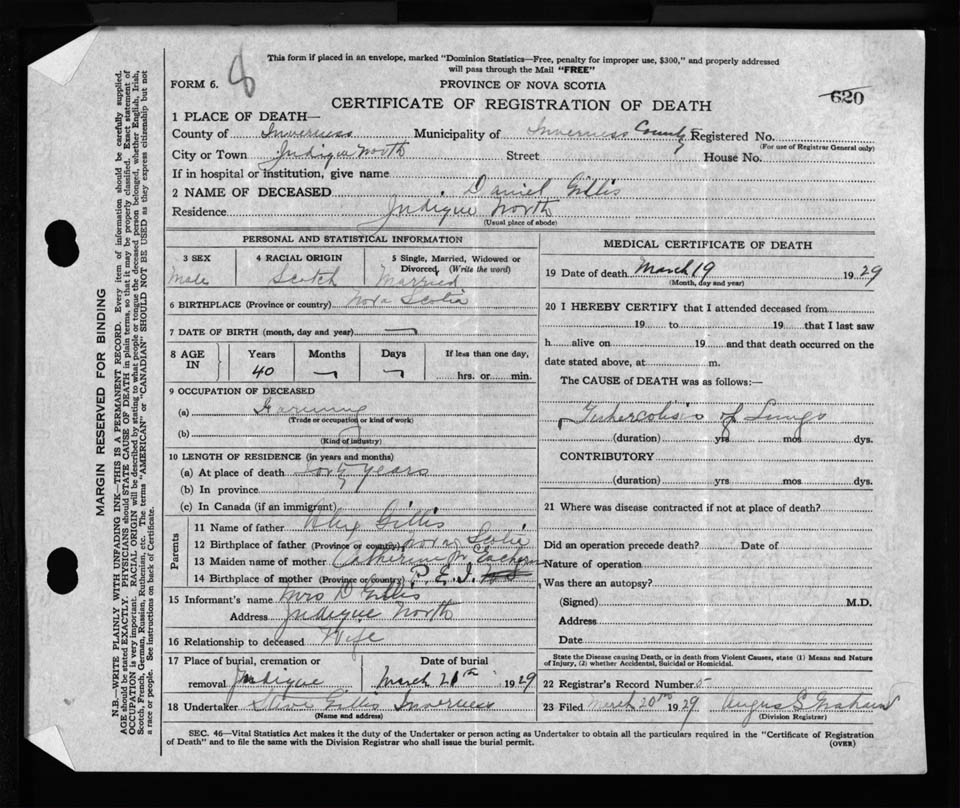 This form if placed in an envelope, marked "Dominion Statistics—Free, penalty for improper use, $300," and properly addressed
will pass through the Mail "FREE"
FORM 6. 8
PROVINCE OF NOVA SCOTIA
CERTIFICATE OF REGISTRATION OF DEATH
620
1 PLACE OF DEATH—
County of Inverness Municipality of Inverness County Registered No.
(For use of Registrar General only)
City or Town Judique North Street House No.
If in hospital or institution, give name
2 NAME OF DECEASED Daniel Gillis
Residence Judique North
(Usual place of abode)
PERSONAL AND STATISTICAL INFORMATION
3 SEX 4 RACIAL ORIGIN 5 Single, Married, Widowed or
Divorced, (Write the word)
Male Scotch Married
6 BIRTHPLACE (Province or country) Nova Scotia
7 DATE OF BIRTH (month, day and year) —
8 AGE IN Years Months Days If less than one day,
40 — — hrs. or min.
9 OCCUPATION OF DECEASED
(a) Farming
(Trade or occupation or kind of work)
(b)
(Kind of industry)
10 LENGTH OF RESIDENCE (in years and months)
(a) At place of death years
(b) In province
(c) In Canada (if an immigrant)
Parents
11 Name of father Alex Gillis
12 Birthplace of father (Province or country) Nova Scotia
13 Maiden name of mother Catherine McEachern
14 Birthplace of mother (Province or country) P.E.I.
15 Informant's name Mrs D Gillis
Address Judique North
16 Relationship to deceased Wife
17 Place of burial, cremation or Date of burial
removal Judique March 21th 1929
18 Undertaker Steve Gillis Inverness
(Name and address)
MEDICAL CERTIFICATE OF DEATH
19 Date of death March 19 1929
(Month, day and year)
20 I HEREBY CERTIFY that I attended deceased from
19 to 19 that I last saw
h alive on 19 and that death occurred on the
date stated above, at m.
The CAUSE of DEATH was as follows:—
Tubercolisis of Lungs
(duration) yrs mos dys.
CONTRIBUTORY
(duration) yrs mos dys.
21 Where was disease contracted if not at place of death?
Did an operation precede death? Date of
Nature of operation
Was there an autopsy?
(Signed) M.D.
Address
Date
State the Disease causing Death, or in death from Violent Causes, state (1) Means and Nature
of Injury, (2) whether Accidental, Suicidal or Homicidal.
22 Registrar's Record Number 5
23 Filed March 20th 1929 Angus S Graham
(Division Registrar)
SEC. 46—Vital Statistics Act makes it the duty of the Undertaker or person acting as Undertaker to obtain all the particulars required in the "Certificate of Registration
of Death" and to file the same with the Division Registrar who shall issue the burial permit.
(OVER)
MARGIN RESERVED FOR BINDING
N.B.—WRITE PLAINLY WITH UNFADING INK—THIS IS A PERMANENT RECORD. Every item of information should be carefully supplied.
AGE should be stated EXACTLY. PHYSICIANS should STATE CAUSE OF DEATH in plain terms, so that it may be properly classified. Exact statement of
OCCUPATION is very important. RACIAL ORIGIN will be described by stating to what people or tongue the deceased person belonged, whether English, Irish,
Scotch, French, German, Russian, Ruthenian, etc. The terms "AMERICAN" or "CANADIAN" SHOULD NOT BE USED as they express citizenship but not
a race or people. See instructions on back of Certificate.